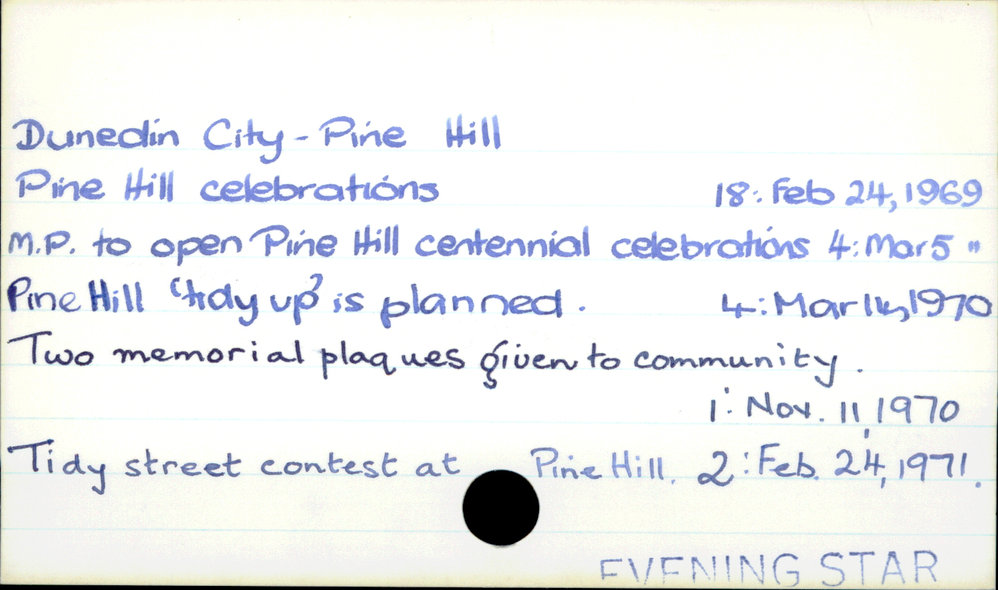 Dunedin City - Pine Hill
Pine Hill celebrations 18: Feb 24, 1969
M.P. to open Pine Hill centennial celebrations 4: Mar 5 "
Pine Hill 'tidy up' is planned. 4: Mar 14, 1970
Two memorial plaques given to community.
1: Nov. 11, 1970
Tidy street contest at Pine Hill. 2: Feb. 24, 1971.
EVENING STAR